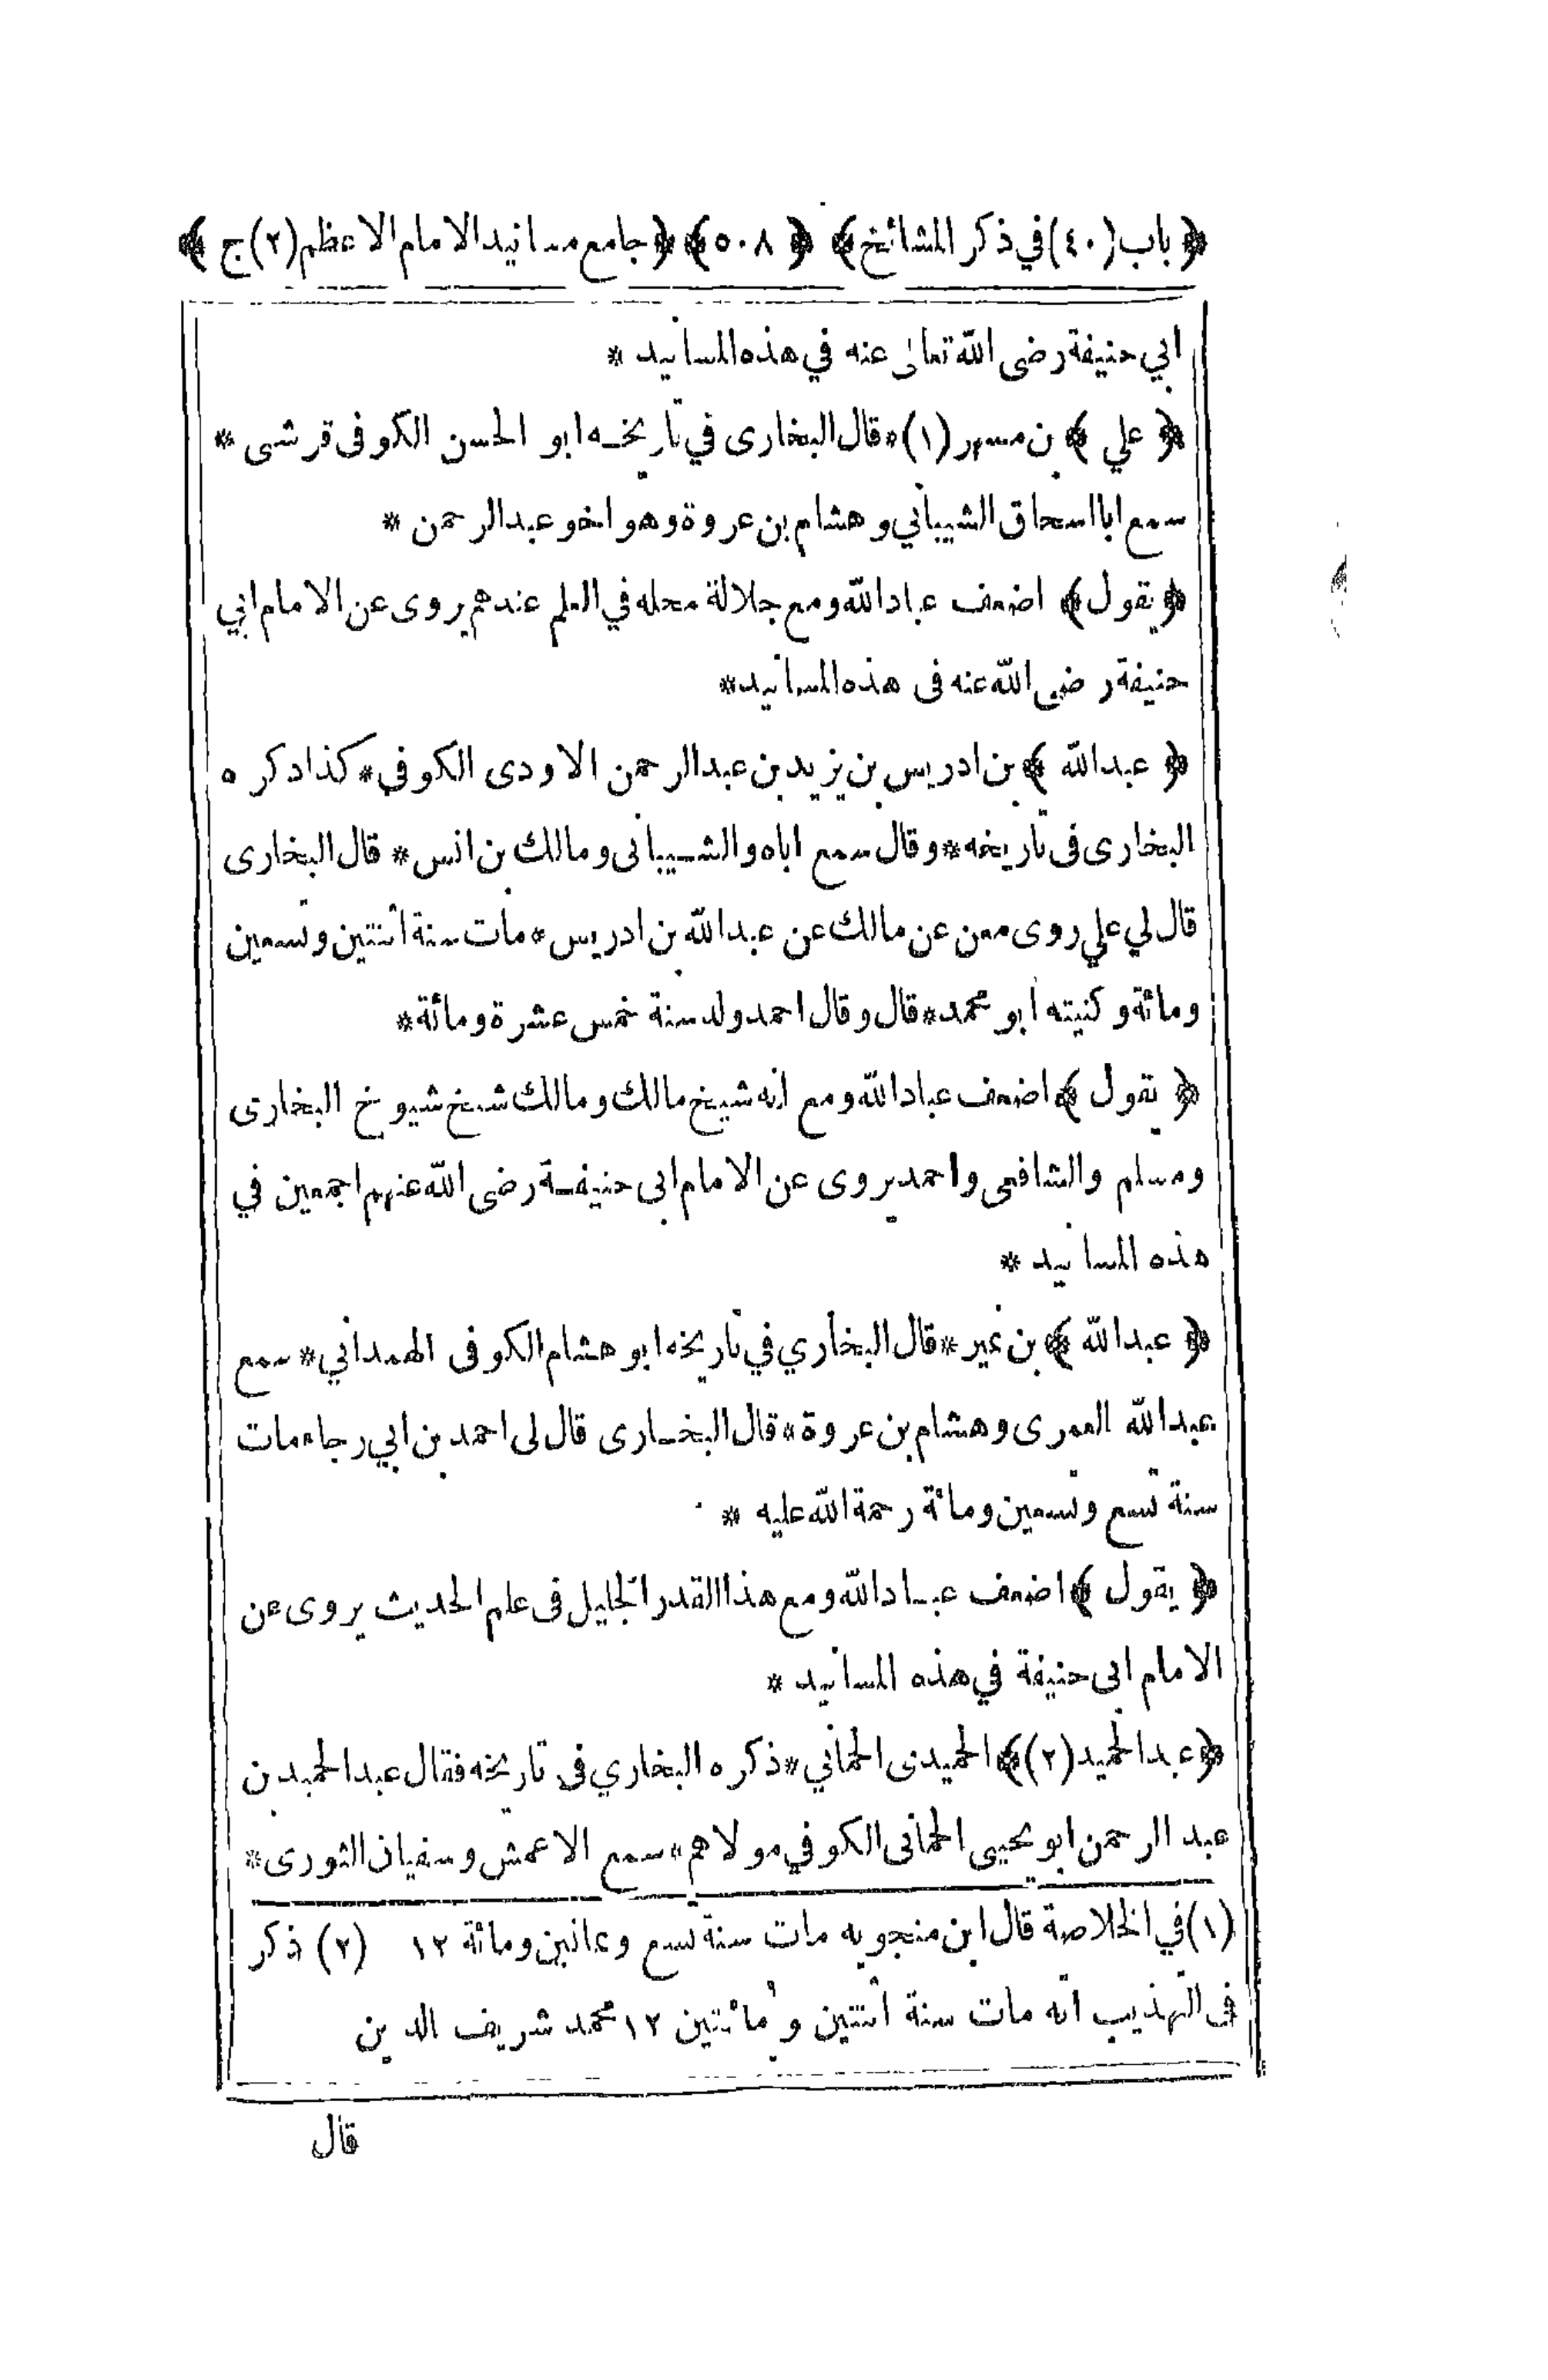 ﴿ باب (٤٠) في ذكر المشائخ ﴾ ﴿ ٥٠٨ ﴾ ﴿ جامع مسانيد الامام الاعظم (٢) ج ﴾
ابي حنيفة رضى الله تعالى عنه في هذه المسانيد *
﴿ علي ﴾ بن مسهر (١) * قال البخارى في تاريخه ابو الحسن الكوفى قرشى *
سمع ابا اسحاق الشيباني و هشام بن عروة وهو اخو عبد الرحمن *
﴿ يقول ﴾ اضعف عباد الله ومع جلالة محله في العلم عندهم يروى عن الامام ابي
حنيفة رضى الله عنه فى هذه المسانيد *
﴿ عبد الله ﴾ بن ادريس بن يزيد بن عبد الرحمن الاودى الكوفي * كذا ذكره
البخارى فى تاريخه * وقال سمع اباه والشيبانى ومالك بن انس * قال البخارى
قال لي علي روى معن عن مالك عن عبد الله بن ادريس * مات سنة اثنتين وتسعين
ومائة وكنيته ابو محمد * قال وقال احمد ولد سنة خمس عشرة ومائة *
﴿ يقول ﴾ اضعف عباد الله ومع انه شيخ مالك ومالك شيخ شيوخ البخارى
ومسلم والشافعى واحمد يروى عن الامام ابى حنيفة رضى الله عنهم اجمعين في
هذه المسانيد *
﴿ عبد الله ﴾ بن نمير * قال البخاري في تاريخه ابو هشام الكوفى الهمداني * سمع
عبد الله العمرى وهشام بن عروة * قال البخارى قال لى احمد بن ابي رجاء مات
سنة تسع وتسعين ومائة رحمة الله عليه *
﴿ يقول ﴾ اضعف عباد الله ومع هذا القدر الجليل فى علم الحديث يروى عن
الامام ابى حنيفة في هذه المسانيد *
﴿ عبد الحميد (٢) ﴾ الحميدى الحماني * ذكره البخاري فى تاريخه فقال عبد الحميد بن
عبد الرحمن ابو يحيى الحمانى الكوفي مولاهم * سمع الاعمش وسفيان الثورى *
(١) في الخلاصة قال ابن منجويه مات سنة تسع وثمانين ومائة ١٢ (٢) ذكر
فى التهذيب انه مات سنة اثنتين ومائتين ١٢ محمد شريف الدين
قال